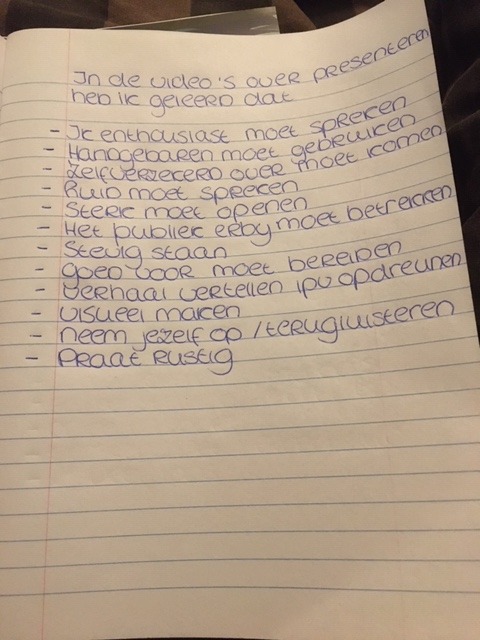 In de video's over presenteren
heb ik geleerd dat
- Ik enthousiast moet spreken
- Handgebaren moet gebruiken
- Zelfverzekerd over moet komen
- Luid moet spreken
- Sterk moet openen
- Het publiek erby moet betrekken
- Stevig staan
- goed voor moet bereiden
- verhaal vertellen ipv opdreunen
- visueel maken
- neem jezelf op / terugluisteren
- Praat rustig